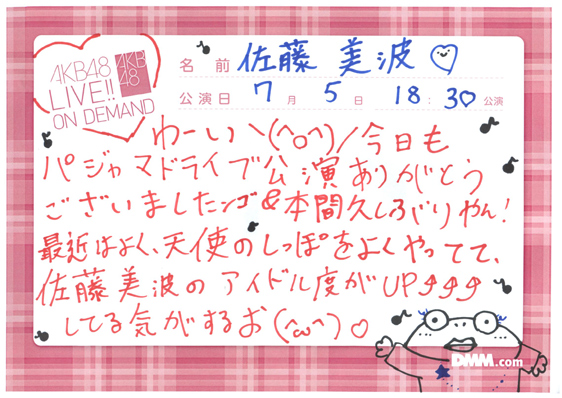 AKB48
LIVE!!
ON DEMAND
AKB
48
名 前 佐藤 美波♡
公演日 7 月 5 日 18:30 公演
わーい＼(^o^)/今日も
パジャマドライブ公演ありがとう
ございましたンゴ&本間久しぶりやん!
最近はよく、天使のしっぽをよくやってて、
佐藤美波のアイドル度がUP⤴⤴⤴
してる気がするお(^ω^)♡
DMM.com